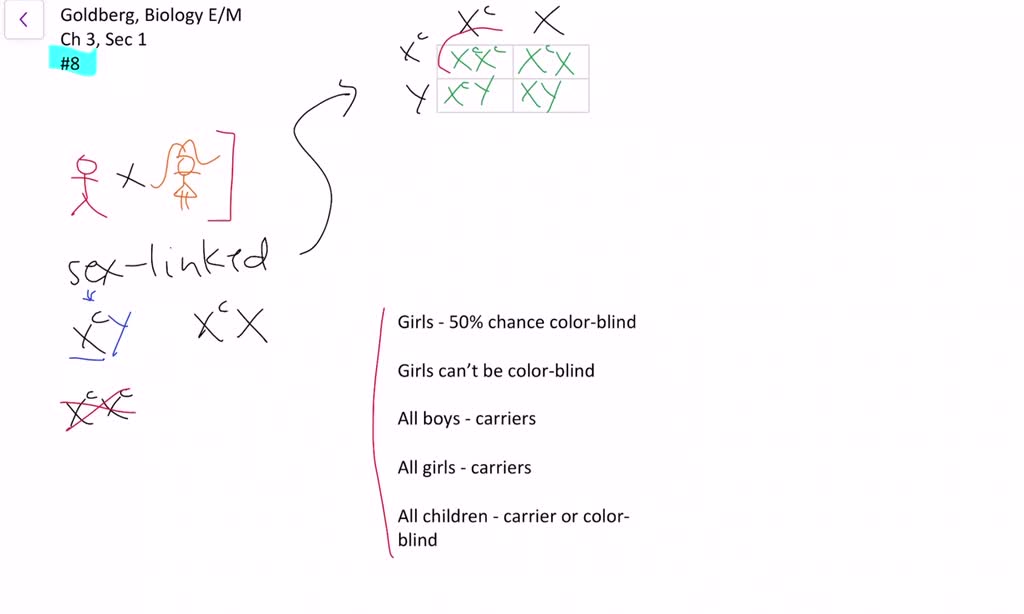 Goldberg, Biology E/M
Ch 3, Sec 1
#8
Xᶜ X
Xᶜ XᶜXᶜ XᶜX
Y XᶜY XY
X
sex-linked
XᶜY XᶜX
XᶜXᶜ
Girls - 50% chance color-blind
Girls can’t be color-blind
All boys - carriers
All girls - carriers
All children - carrier or color-
blind